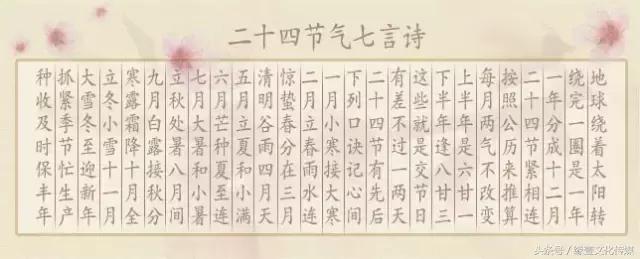 二十四节气七言诗
地球绕着太阳转
绕完一圈是一年
一年分成十二月
二十四节紧相连
按照公历来推算
每月两气不改变
上半年是六廿一
下半年逢八廿三
这些就是交节日
有差不过一两天
二十四节有先后
下列口诀记心间
一月小寒接大寒
二月立春雨水连
惊蛰春分在三月
清明谷雨四月天
五月立夏和小满
六月芒种夏至连
七月大暑和小暑
立秋处暑八月间
九月白露接秋分
寒露霜降十月全
立冬小雪十一月
大雪冬至迎新年
抓紧季节忙生产
种收及时保丰年
头条号/壹文化传媒